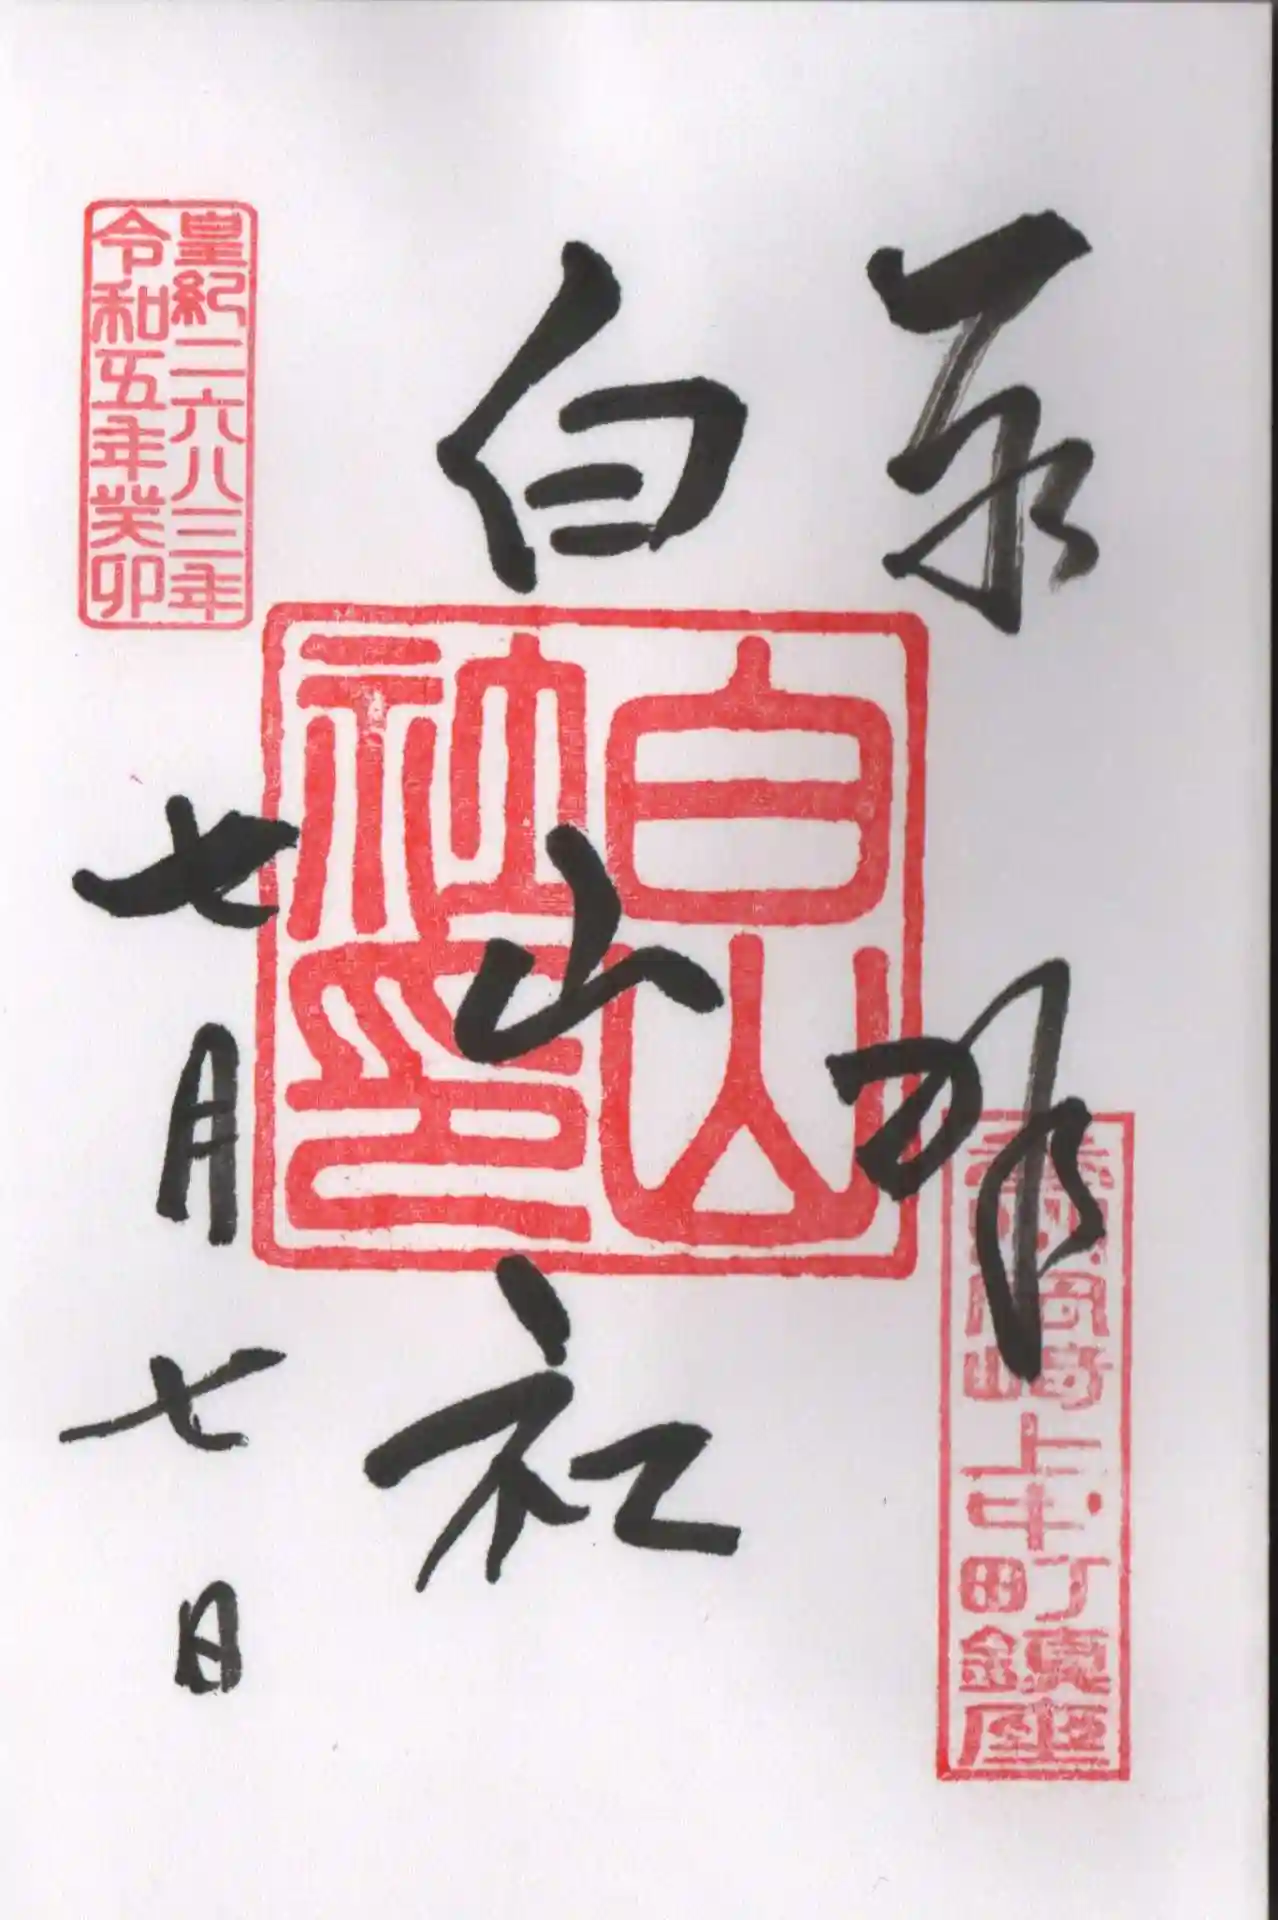 奉拝
岡崎上中町鎮座
白山社
白山
社印
皇紀二六八三年
令和五年癸卯
七月七日